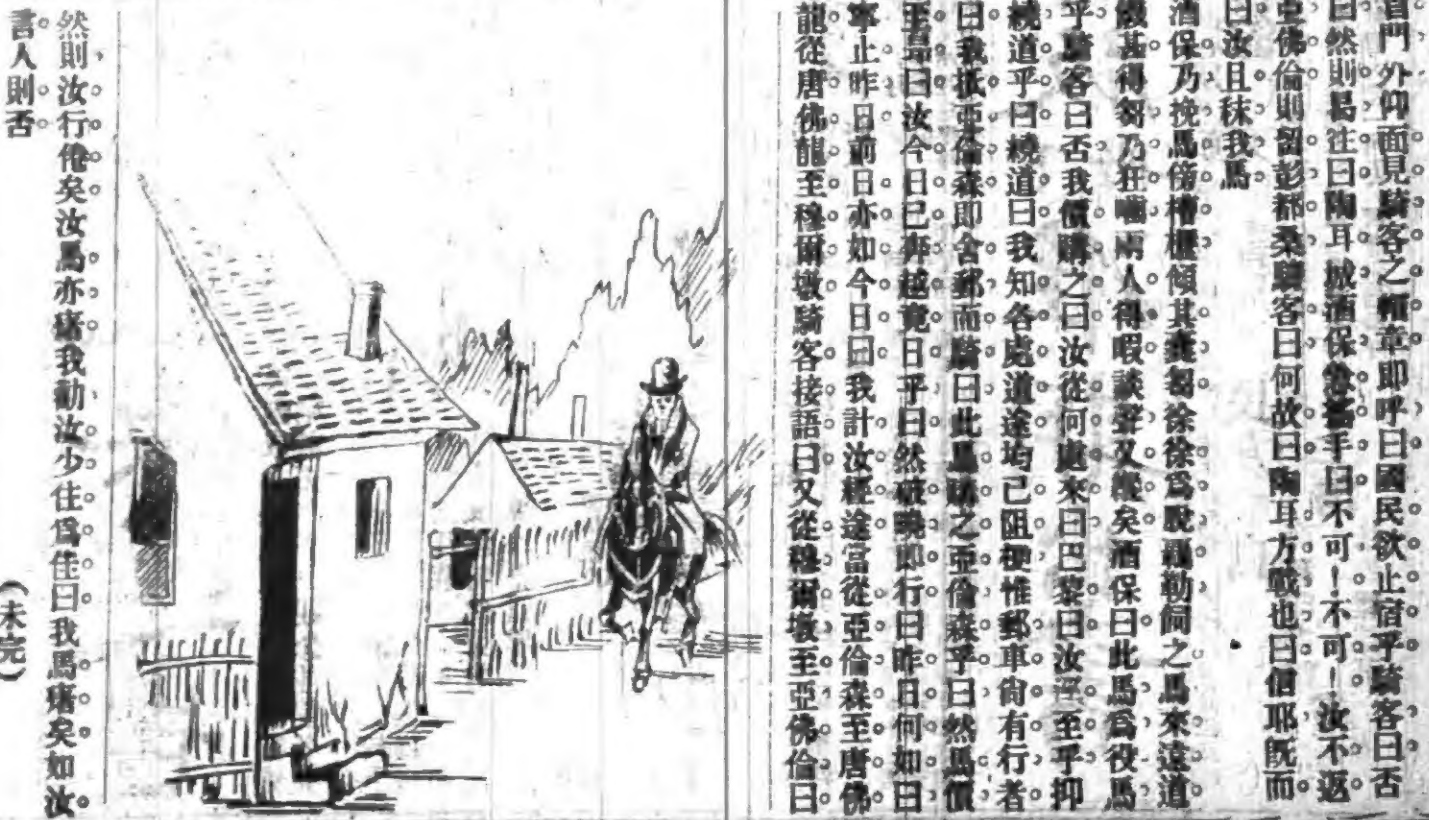 門外仰面見騎客之帽章即呼曰國民欲止宿乎騎客曰否
曰然則曷往曰陶耳城酒保急搖手曰不可！不可！汝不返
亞佛倫則留彭都桑騎客曰何故曰陶耳方戰也曰個耶既而
曰汝且秣我馬
酒保乃挽馬傍槽櫪傾其芻徐徐為脫羈勒飼之馬來遠道
餓甚得芻乃狂嚙兩人得暇談聲又縱矣酒保曰此馬為役馬
乎騎客曰否我價購之曰汝從何處來曰巴黎曰汝逕至乎抑
繞道乎曰繞道曰我知各處道途均已阻梗惟郵車尚有行者
曰我抵亞倫森即舍郵而騎曰此馬購之亞倫森乎曰然馬價
至昂曰汝今日已奔越竟日乎曰然破曉即行曰昨日何如曰
寧止昨日前日亦如今日曰我計汝經途當從亞倫森至唐佛
龍從唐佛龍至穆爾墩騎客接語曰又從穆爾墩至亞佛倫曰
然則汝行倦矣汝馬亦瘏我勸汝少住為佳曰我馬瘏矣如汝
言人則否
（未完）